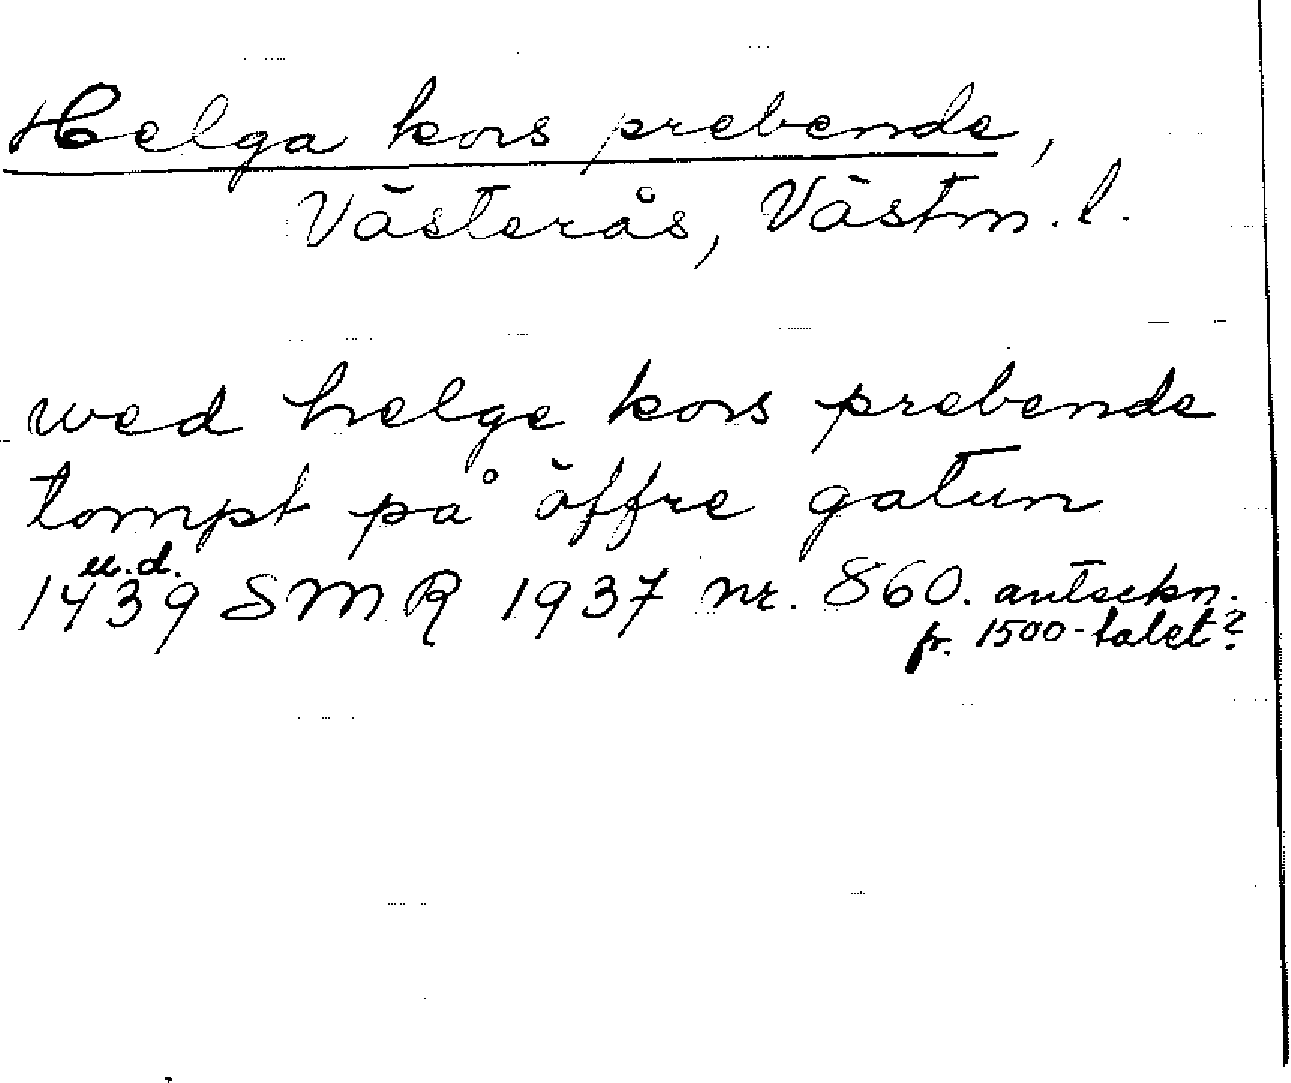 Helga kors prebende,
Västerås, Västm. l.
wed helge kors prebende
tompt på öffre gatun
u.d.
1439 SMR 1937 nr. 860. anteckn.
fr. 1500-talet?